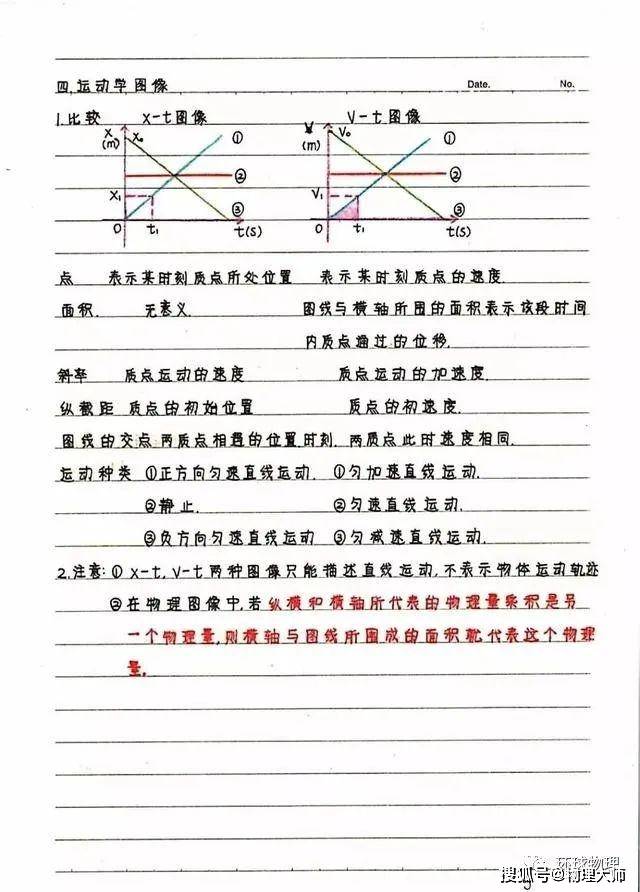 四.运动学图像 Date. No.
1.比较 x-t图像 V-t图像
x x₀ ① V V₀ ①
(m) (m)
② ②
x₁ V₁
③ ③
0 t₁ t(s) 0 t₁ t(s)
点 表示某时刻质点所处位置 表示某时刻质点的速度.
面积. 无意义. 图线与横轴所围的面积表示该段时间
内质点通过的位移.
斜率 质点运动的速度 质点运动的加速度.
纵截距 质点的初始位置 质点的初速度.
图线的交点 两质点相遇的位置.时刻. 两质点此时速度相同.
运动种类 ①正方向匀速直线运动. ①匀加速直线运动.
②静止. ②匀速直线运动.
③负方向匀速直线运动 ③匀减速直线运动.
2.注意:① x-t, V-t两种图像只能描述直线运动,不表示物体运动轨迹
②在物理图像中,若纵横和横轴所代表的物理量乘积是另
一个物理量,则横轴与图线所围成的面积就代表这个物理
量.
环球物理
搜狐号@物理大师